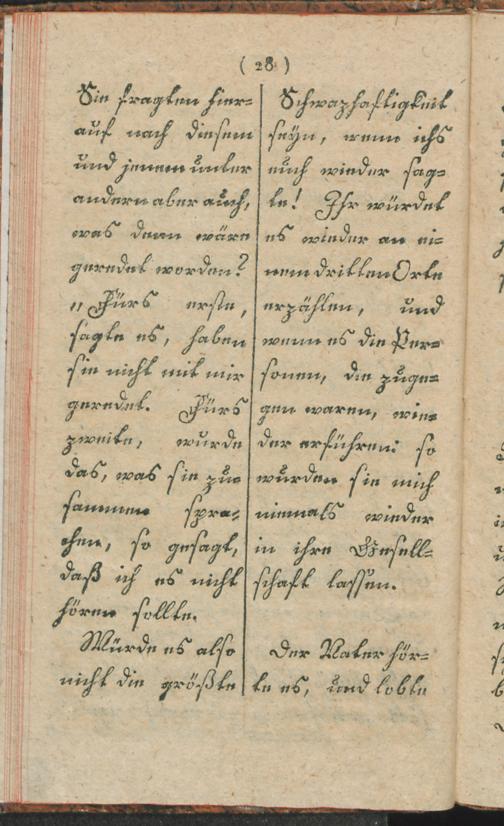 ( 28 )
Sie fragten hier-
auf nach diesem
und jenem unter
andern aber auch,
was denn wäre
geredet worden?
„ Fürs erste,
sagte es, haben
sie nicht mit mir
geredet. Fürs
zweite, wurde
das, was sie zu-
sammen spra-
chen, so gesagt,
daß ich es nicht
hören sollte.
Würde es also
nicht die größte
Schwazhaftigkeit
seyn, wenn ichs
euch wieder sag-
te! Ihr würdet
es wieder an ei-
nem dritten Orte
erzählen, und
wenn es die Per-
sonen, die zuge-
gen waren, wie-
der erführen: so
wurden sie mich
niemals wieder
in ihre Gesell-
schaft lassen.
Der Vater hör-
te es, und lobte